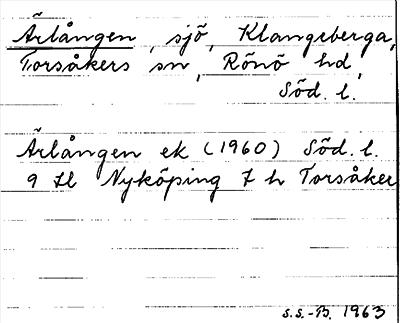 Ärlången, sjö, Klangeberga,
Torsåkers sn, Rönö hd,
Söd. l.
Ärlången ek (1960) Söd. l.
9 Hl Nyköping 7 h Torsåker
S.S.-B. 1963